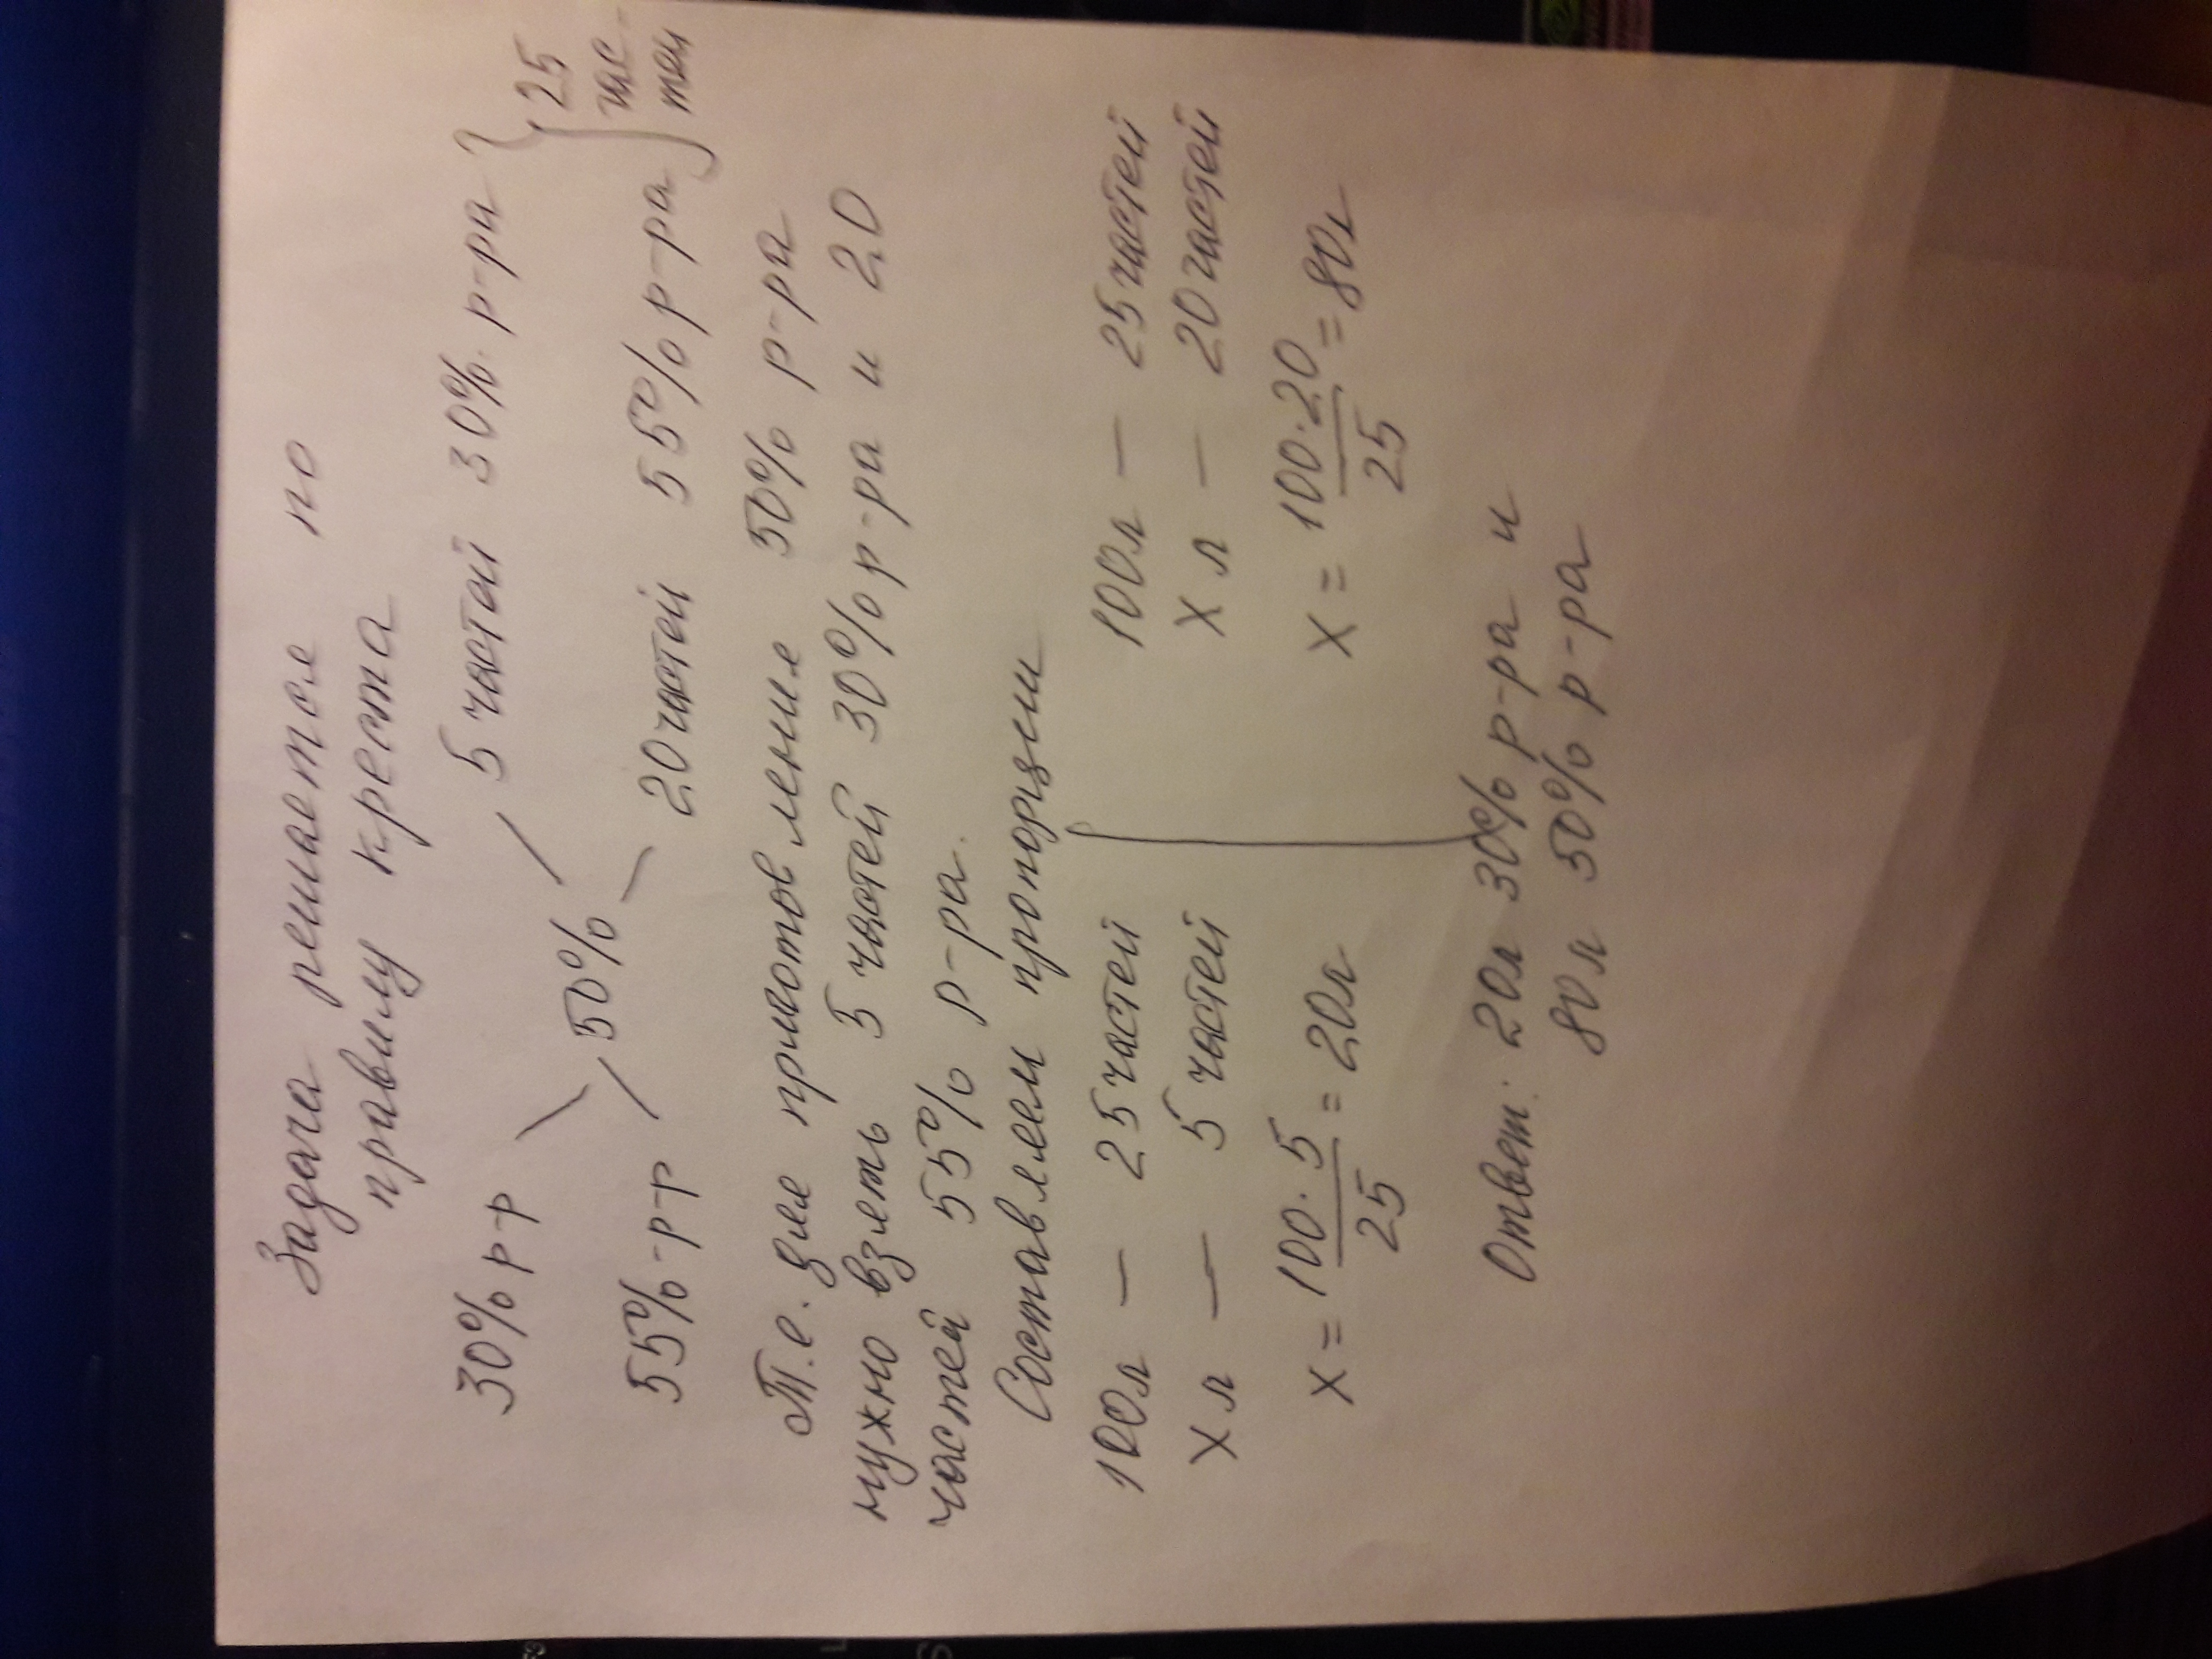 Задача решается по
правилу креста
30% р-р 5 частей 30%. р-ра } 25
50% час-
55%-р-р 20 частей 55% р-ра тей
Т.е. для приготовления 50% р-ра
нужно взять 5 частей 30% р-ра и 20
частей 55% р-ра.
Составляем пропорции
100л — 25 частей 100л — 25 частей
х л — 5 частей х л — 20 частей
х = 100·5/25 = 20л х = 100·20/25 = 80л
Ответ: 20л 30% р-ра и
80 л 50% р-ра